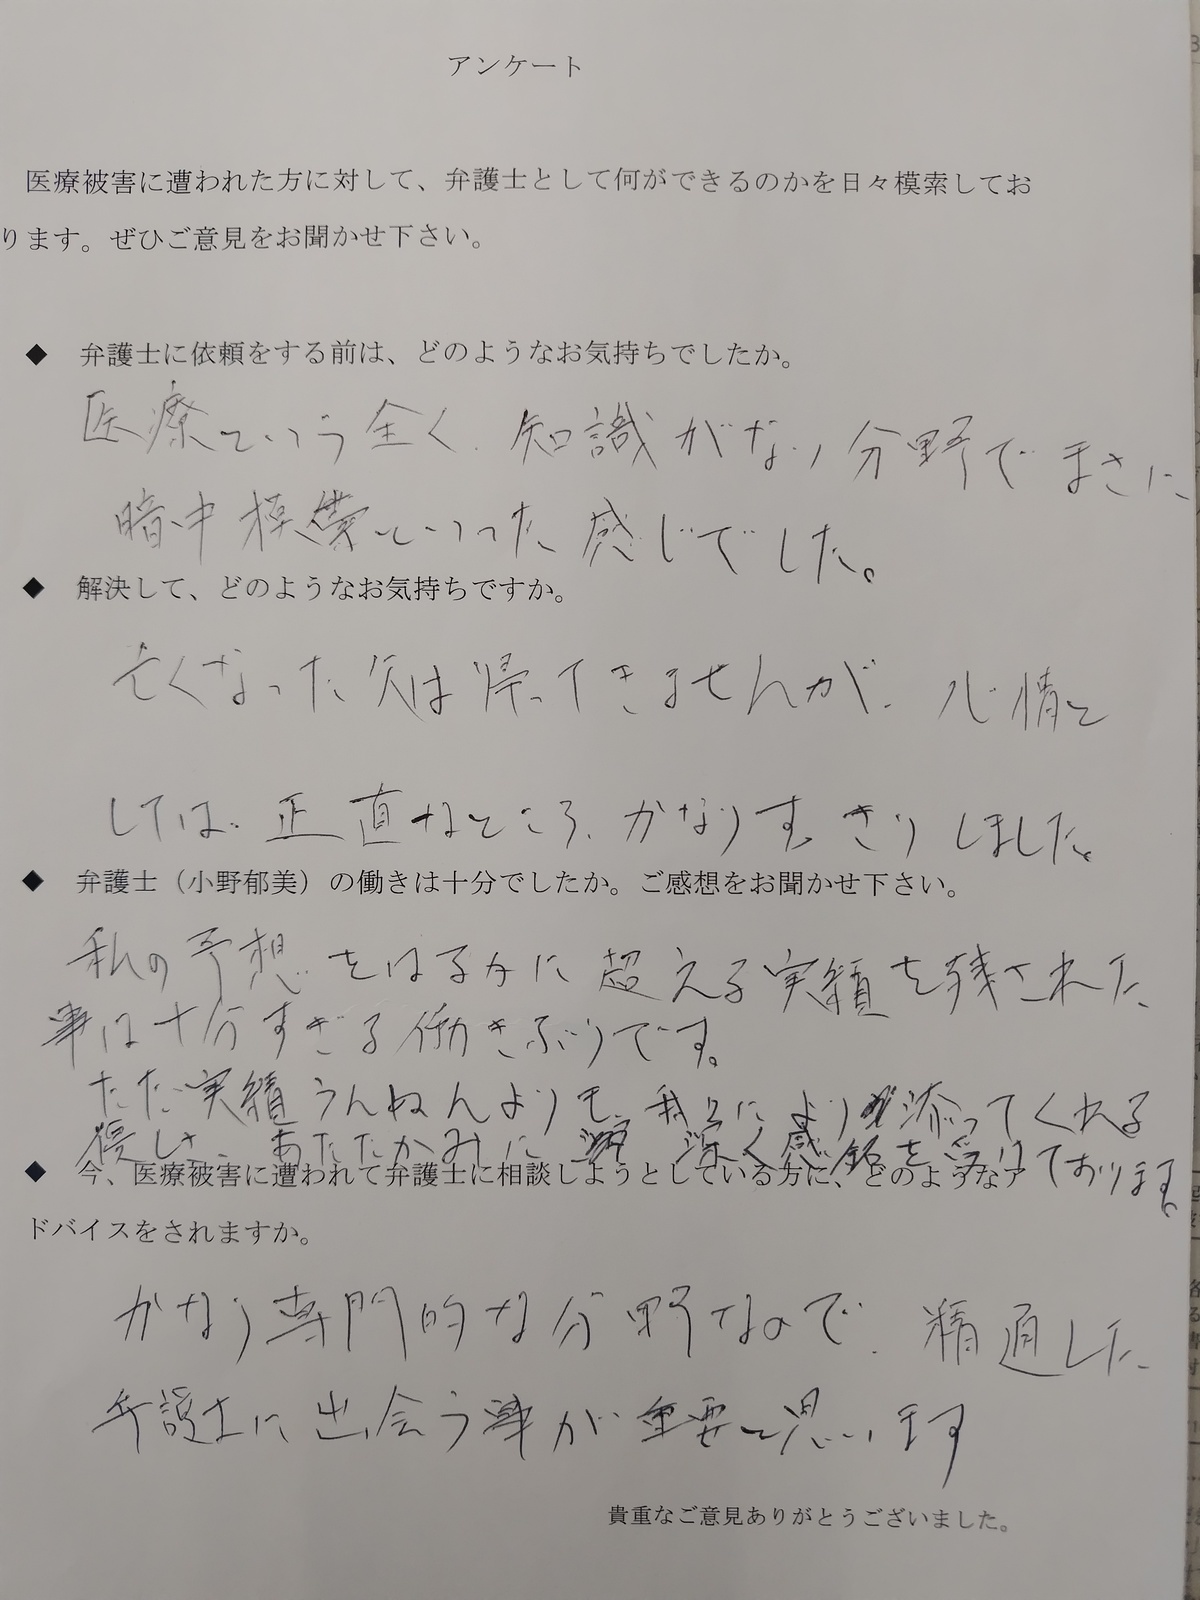 アンケート
医療被害に遭われた方に対して、弁護士として何ができるのかを日々模索してお
ります。ぜひご意見をお聞かせ下さい。
◆ 弁護士に依頼をする前は、どのようなお気持ちでしたか。
医療という全く、知識がない分野でまさに
暗中模索といった感じでした。
◆ 解決して、どのようなお気持ちですか。
亡くなった父は帰ってきませんが、心情と
しては、正直なところ、かなりすっきりしました。
◆ 弁護士（小野郁美）の働きは十分でしたか。ご感想をお聞かせ下さい。
私の予想をはるかに超える実績を残された
事は十分すぎる働きぶりです。
ただ実績うんぬんよりも、我々により添ってくれる
優しさ、あたたかみに深く感銘を受けております。
◆ 今、医療被害に遭われて弁護士に相談しようとしている方に、どのようなア
ドバイスをされますか。
かなり専門的な分野なので、精通した
弁護士に出会う事が重要と思います
貴重なご意見ありがとうございました。